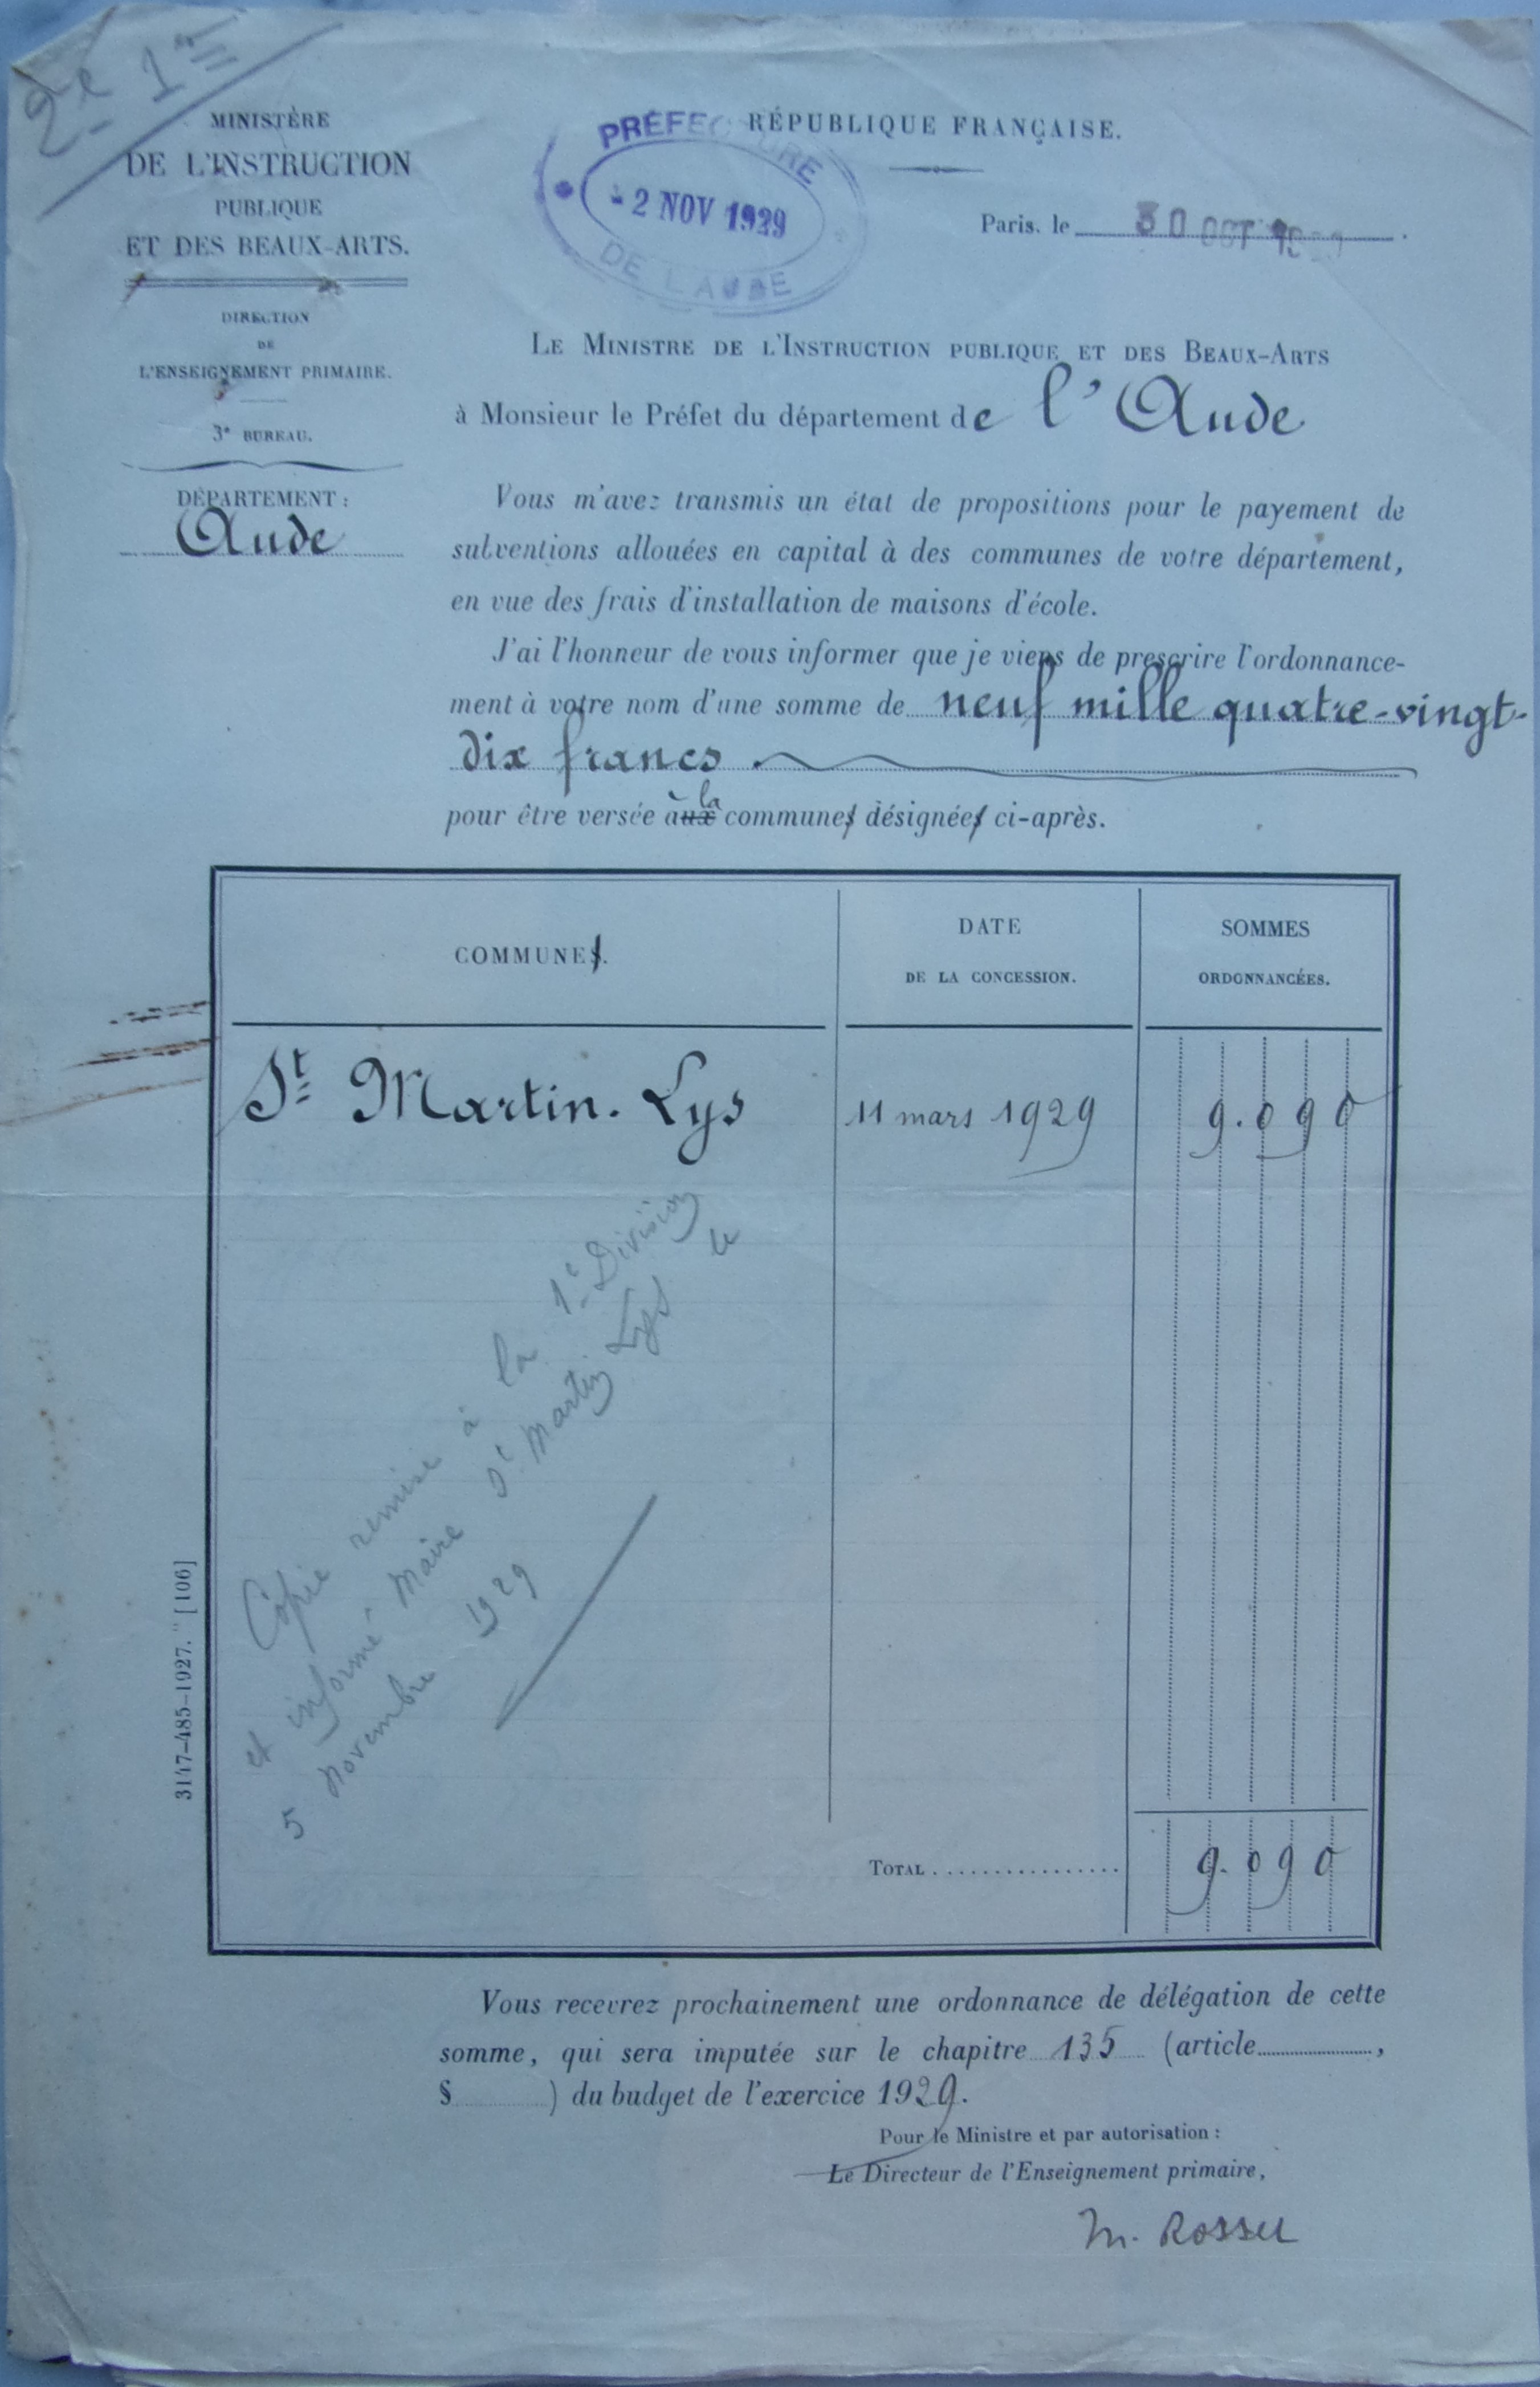 2e 1re
MINISTÈRE
DE L'INSTRUCTION
PUBLIQUE
ET DES BEAUX-ARTS.
DIRECTION
DE
L'ENSEIGNEMENT PRIMAIRE.
3e BUREAU.
DÉPARTEMENT :
Aude
RÉPUBLIQUE FRANÇAISE.
PRÉFECTURE
- 2 NOV 1929
DE L'AUDE
Paris, le 30 OCT 1929
LE MINISTRE DE L'INSTRUCTION PUBLIQUE ET DES BEAUX-ARTS
à Monsieur le Préfet du département de l'Aude
Vous m'avez transmis un état de propositions pour le payement de
subventions allouées en capital à des communes de votre département,
en vue des frais d'installation de maisons d'école.
J'ai l'honneur de vous informer que je viens de prescrire l'ordonnance-
ment à votre nom d'une somme de neuf mille quatre-vingt-
dix francs
pour être versée à la commune désignée ci-après.
COMMUNE.
DATE
DE LA CONCESSION.
SOMMES
ORDONNANCÉES.
St Martin-Lys 11 mars 1929 9.090
Copie remise à la 1e Division
et informé Maire St Martin Lys le
5 Novembre 1929
TOTAL ................ 9.090
3147-485-1927. " [106]
Vous recevrez prochainement une ordonnance de délégation de cette
somme, qui sera imputée sur le chapitre 135 (article ,
§ ) du budget de l'exercice 1929.
Pour le Ministre et par autorisation :
Le Directeur de l'Enseignement primaire,